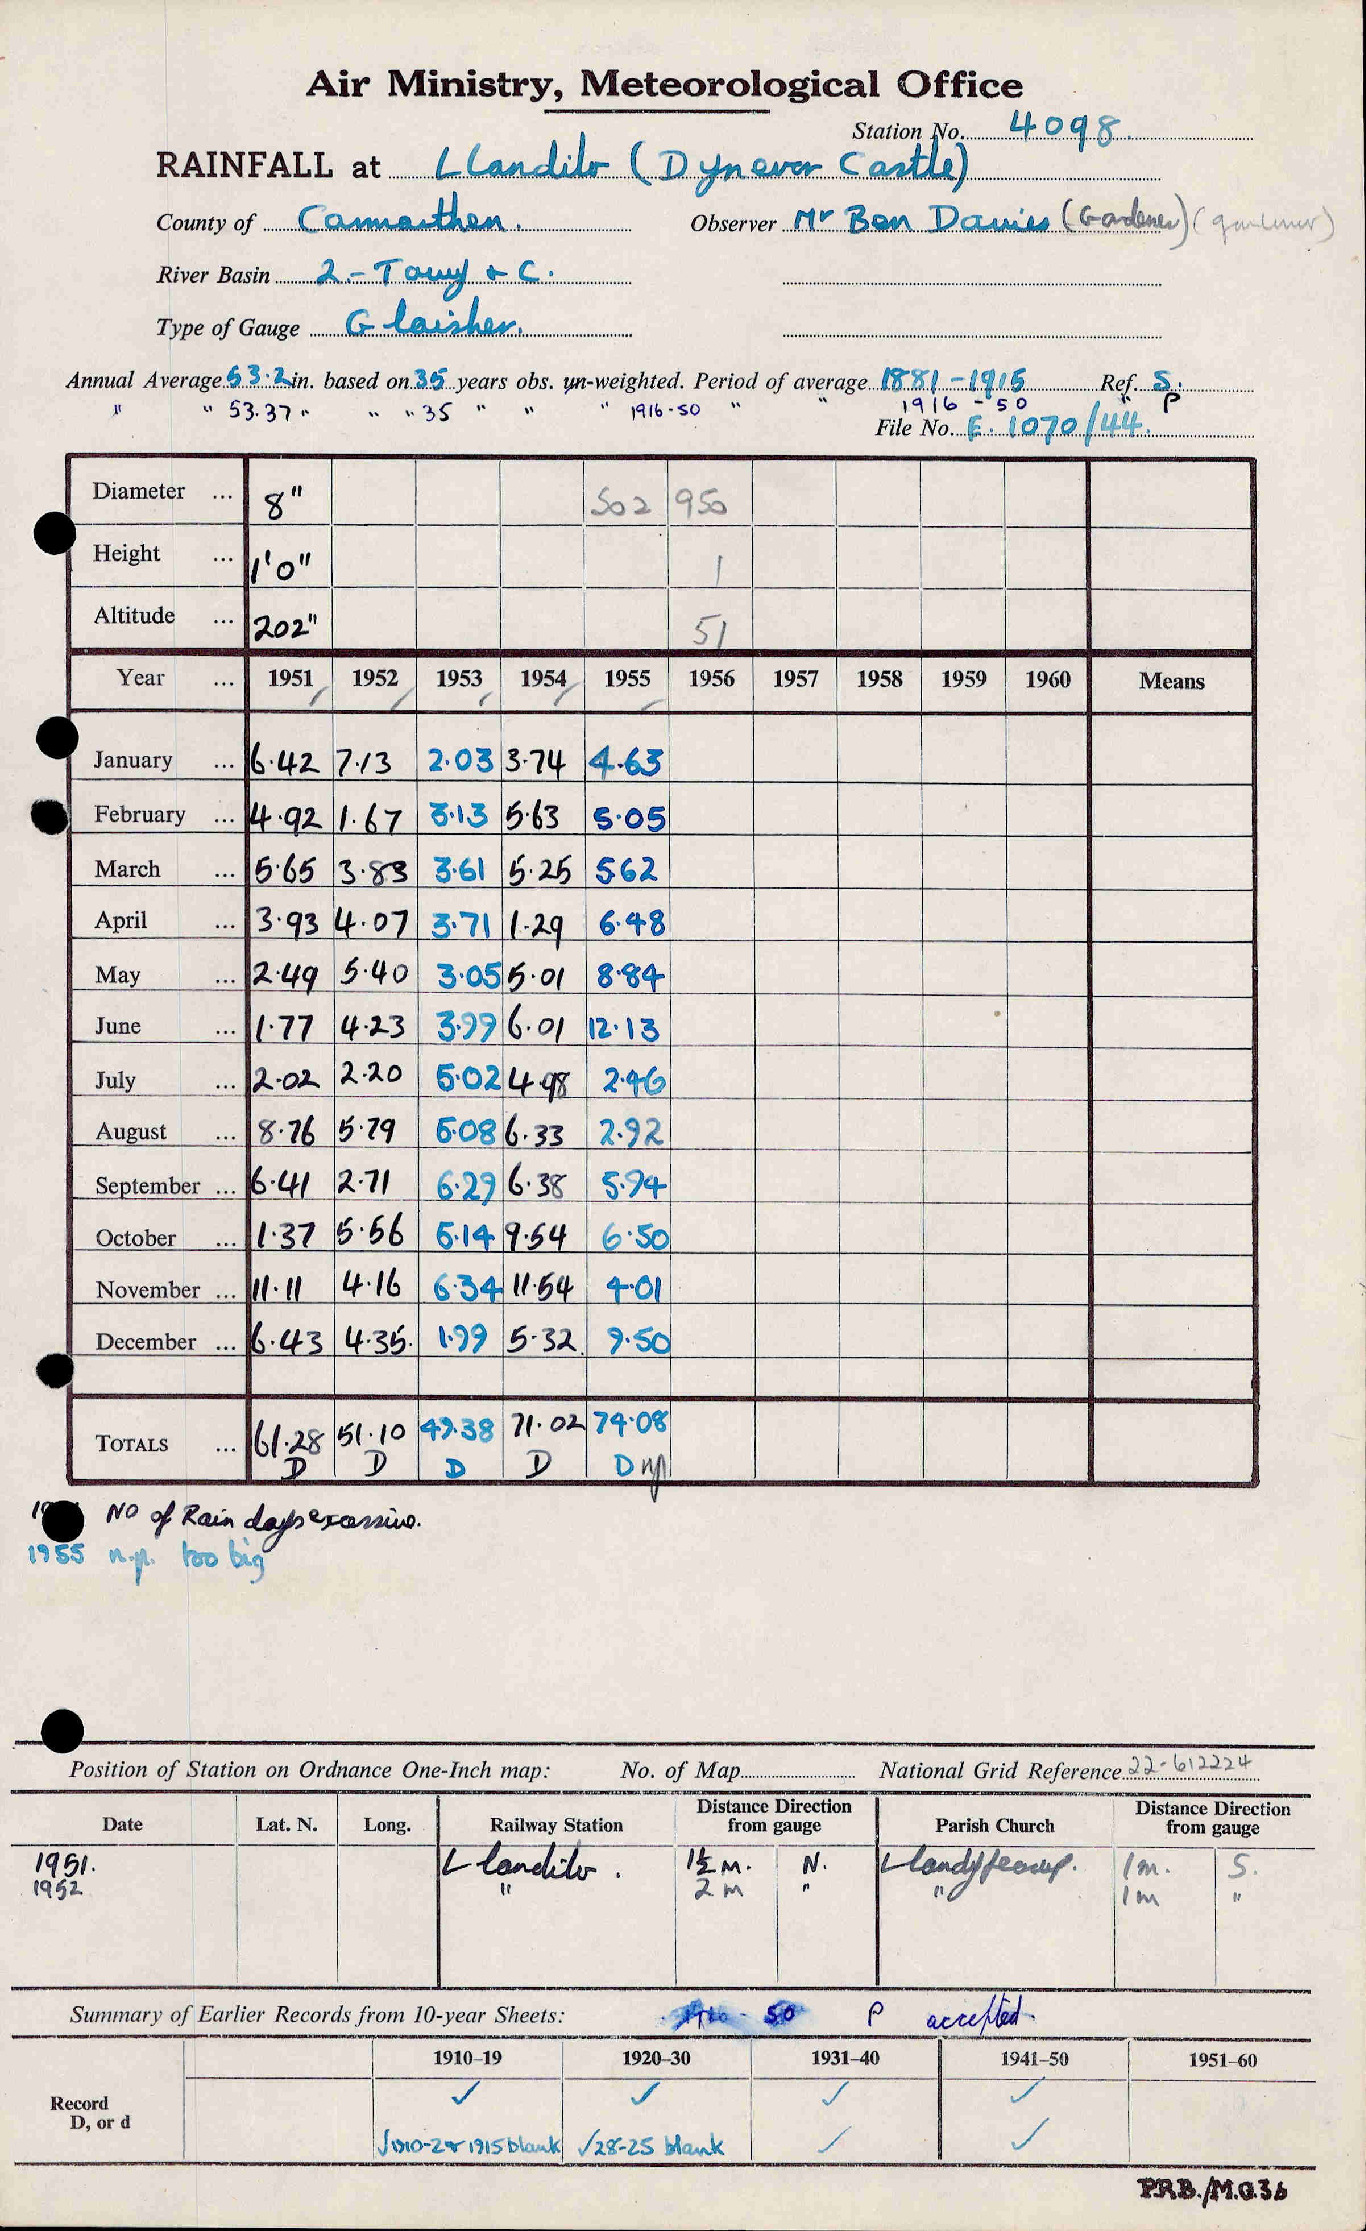 Air Ministry, Meteorological Office
Station No. 4098.
RAINFALL at Llandilo (Dynevor Castle)
County of Carmarthen. Observer Mr Ben Davies (Gardener) (gardener)
River Basin 2.- Towy & C.
Type of Gauge Glaisher.
Annual Average 53.2 in. based on 35 years obs. un-weighted. Period of average 1881-1915 Ref. S.
" " 53.37 " " " 35 " " " 1916-50 " " 1916-50 " P
File No. E. 1070/44.
Diameter ... 8" 502 950
Height ... 1'0" 1
Altitude ... 202" 51
Year ... 1951 1952 1953 1954 1955 1956 1957 1958 1959 1960 Means
January ... 6.42 7.13 2.03 3.74 4.63
February ... 4.92 1.67 3.13 5.63 5.05
March ... 5.65 3.83 3.61 5.25 5.62
April ... 3.93 4.07 3.71 1.29 6.48
May ... 2.49 5.40 3.05 5.01 8.84
June ... 1.77 4.23 3.99 6.01 12.13
July ... 2.02 2.20 5.02 4.98 2.46
August ... 8.76 5.79 5.08 6.33 2.92
September ... 6.41 2.71 6.29 6.38 5.94
October ... 1.37 5.56 5.14 9.54 6.50
November ... 11.11 4.16 6.34 11.54 4.01
December ... 6.43 4.35. 1.99 5.32 9.50
TOTALS ... 61.28 51.10 49.38 71.02 74.08
D D D D D np
No of Rain days excessive.
1955 n.p. too big
Position of Station on Ordnance One-Inch map: No. of Map National Grid Reference 22-612224
Date Lat. N. Long. Railway Station Distance Direction from gauge Parish Church Distance Direction from gauge
1951. Llandilo. 1½ m. N. 1m. S.
1952 " 2 m " " 1m "
Summary of Earlier Records from 10-year Sheets: 50 P accepted
1910–19 1920–30 1931–40 1941–50 1951–60
Record ✓ ✓ ✓ ✓
D, or d √1910-2 & 1915 blank √28-25 blank ✓ ✓
P.R.B./M.O.36